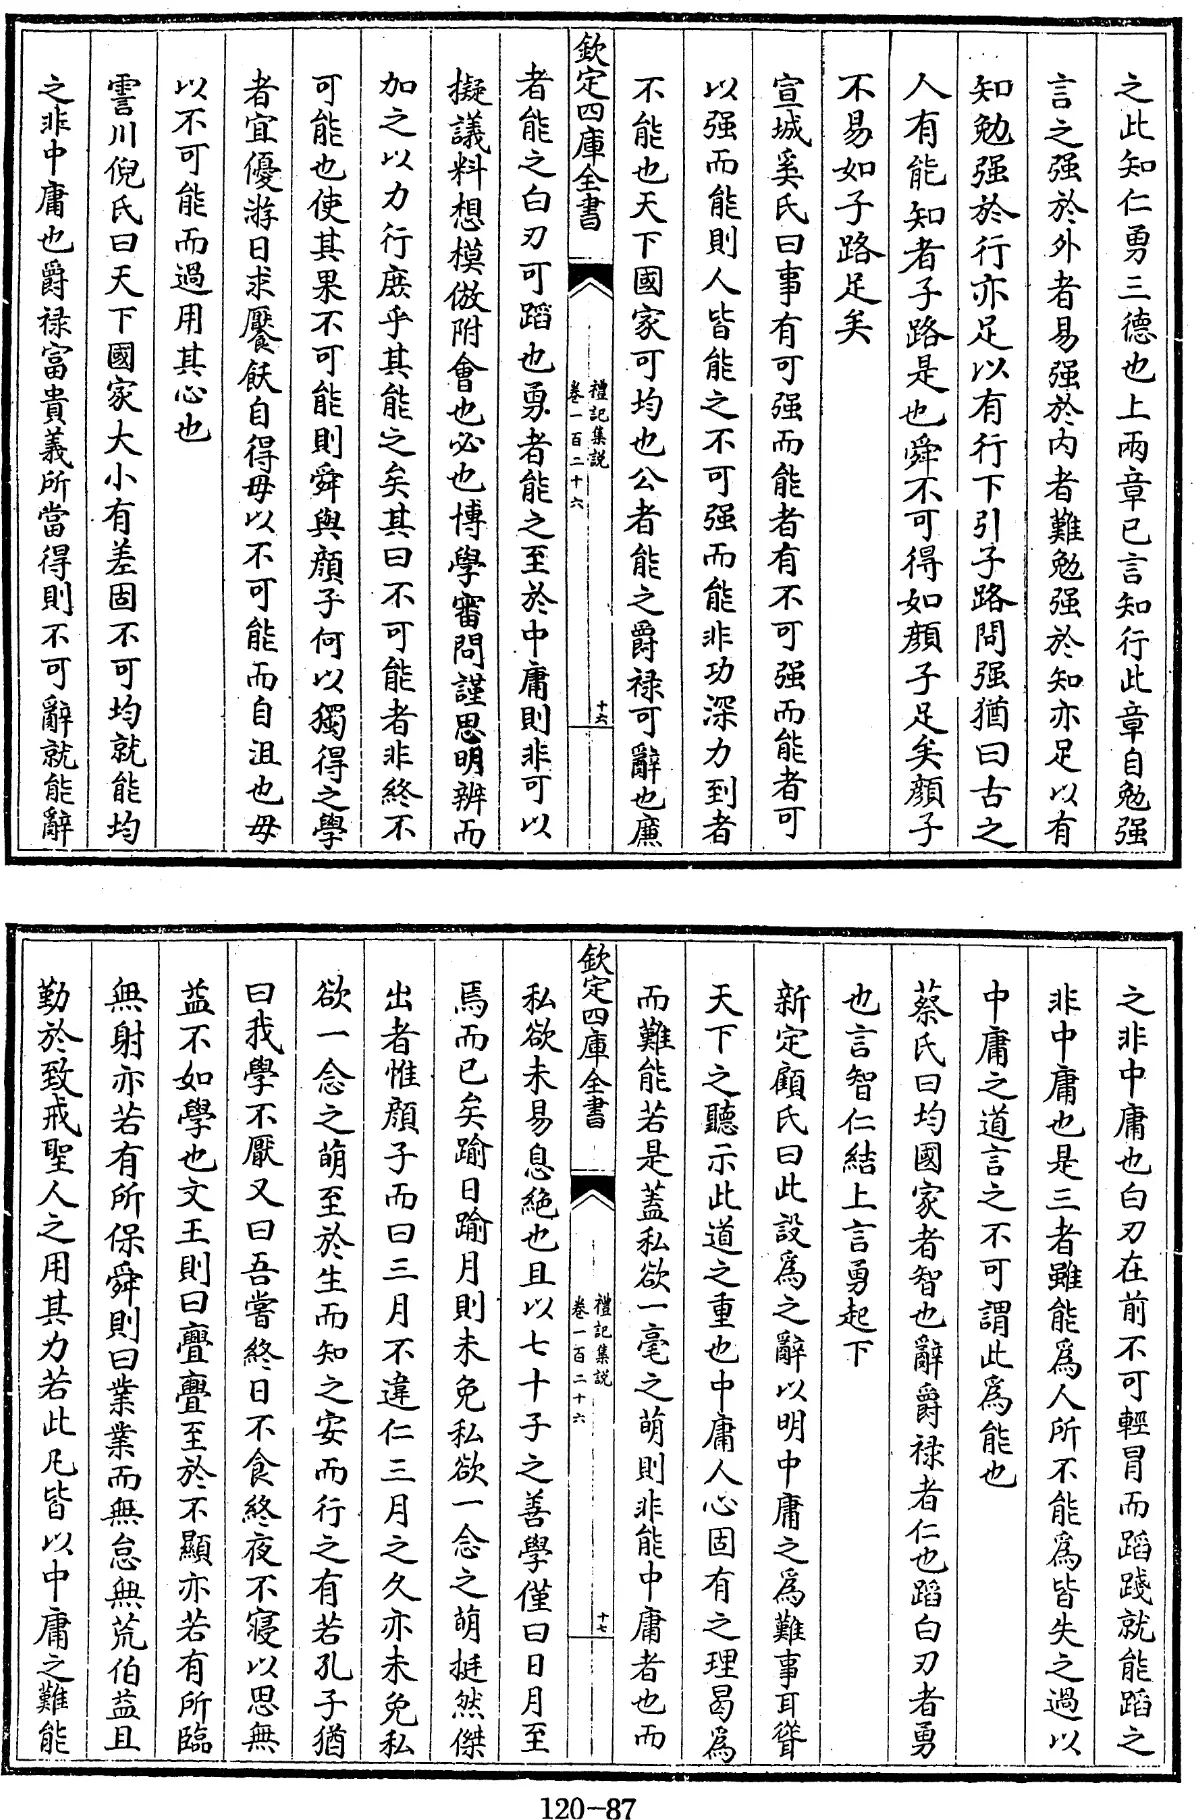 之此知仁勇三德也上兩章已言知行此章自勉强
言之强於外者易强於内者難勉强於知亦足以有
知勉强於行亦足以有行下引子路問强猶曰古之
人有能知者子路是也舜不可得如顔子足矣顔子
不易如子路足矣
宣城奚氏曰事有可强而能者有不可强而能者可
以强而能則人皆能之不可强而能非功深力到者
不能也天下國家可均也公者能之爵禄可辭也廉
欽定四庫全書
禮記集説
卷一百二十六
十六
者能之白刃可蹈也勇者能之至於中庸則非可以
擬議料想模倣附會也必也博學審問謹思明辨而
加之以力行庶乎其能之矣其曰不可能者非終不
可能也使其果不可能則舜與顔子何以獨得之學
者宜優游日求饜飫自得毋以不可能而自沮也毋
以不可能而過用其心也
霅川倪氏曰天下國家大小有差固不可均就能均
之非中庸也爵禄富貴義所當得則不可辭就能辭
之非中庸也白刃在前不可輕冒而蹈踐就能蹈之
非中庸也是三者雖能爲人所不能爲皆失之過以
中庸之道言之不可謂此爲能也
蔡氏曰均國家者智也辭爵禄者仁也蹈白刃者勇
也言智仁結上言勇起下
新定顧氏曰此設爲之辭以明中庸之爲難事耳聳
天下之聽示此道之重也中庸人心固有之理曷爲
而難能若是蓋私欲一毫之萌則非能中庸者也而
欽定四庫全書
禮記集説
卷一百二十六
十七
私欲未易息絶也且以七十子之善學僅曰日月至
焉而已矣踰日踰月則未免私欲一念之萌挺然傑
出者惟顔子而曰三月不違仁三月之久亦未免私
欲一念之萌至於生而知之安而行之有若孔子猶
曰我學不厭又曰吾嘗終日不食終夜不寢以思無
益不如學也文王則曰亹亹至於不顯亦若有所臨
無射亦若有所保舜則曰業業而無怠無荒伯益且
勤於致戒聖人之用其力若此凡皆以中庸之難能
120-87